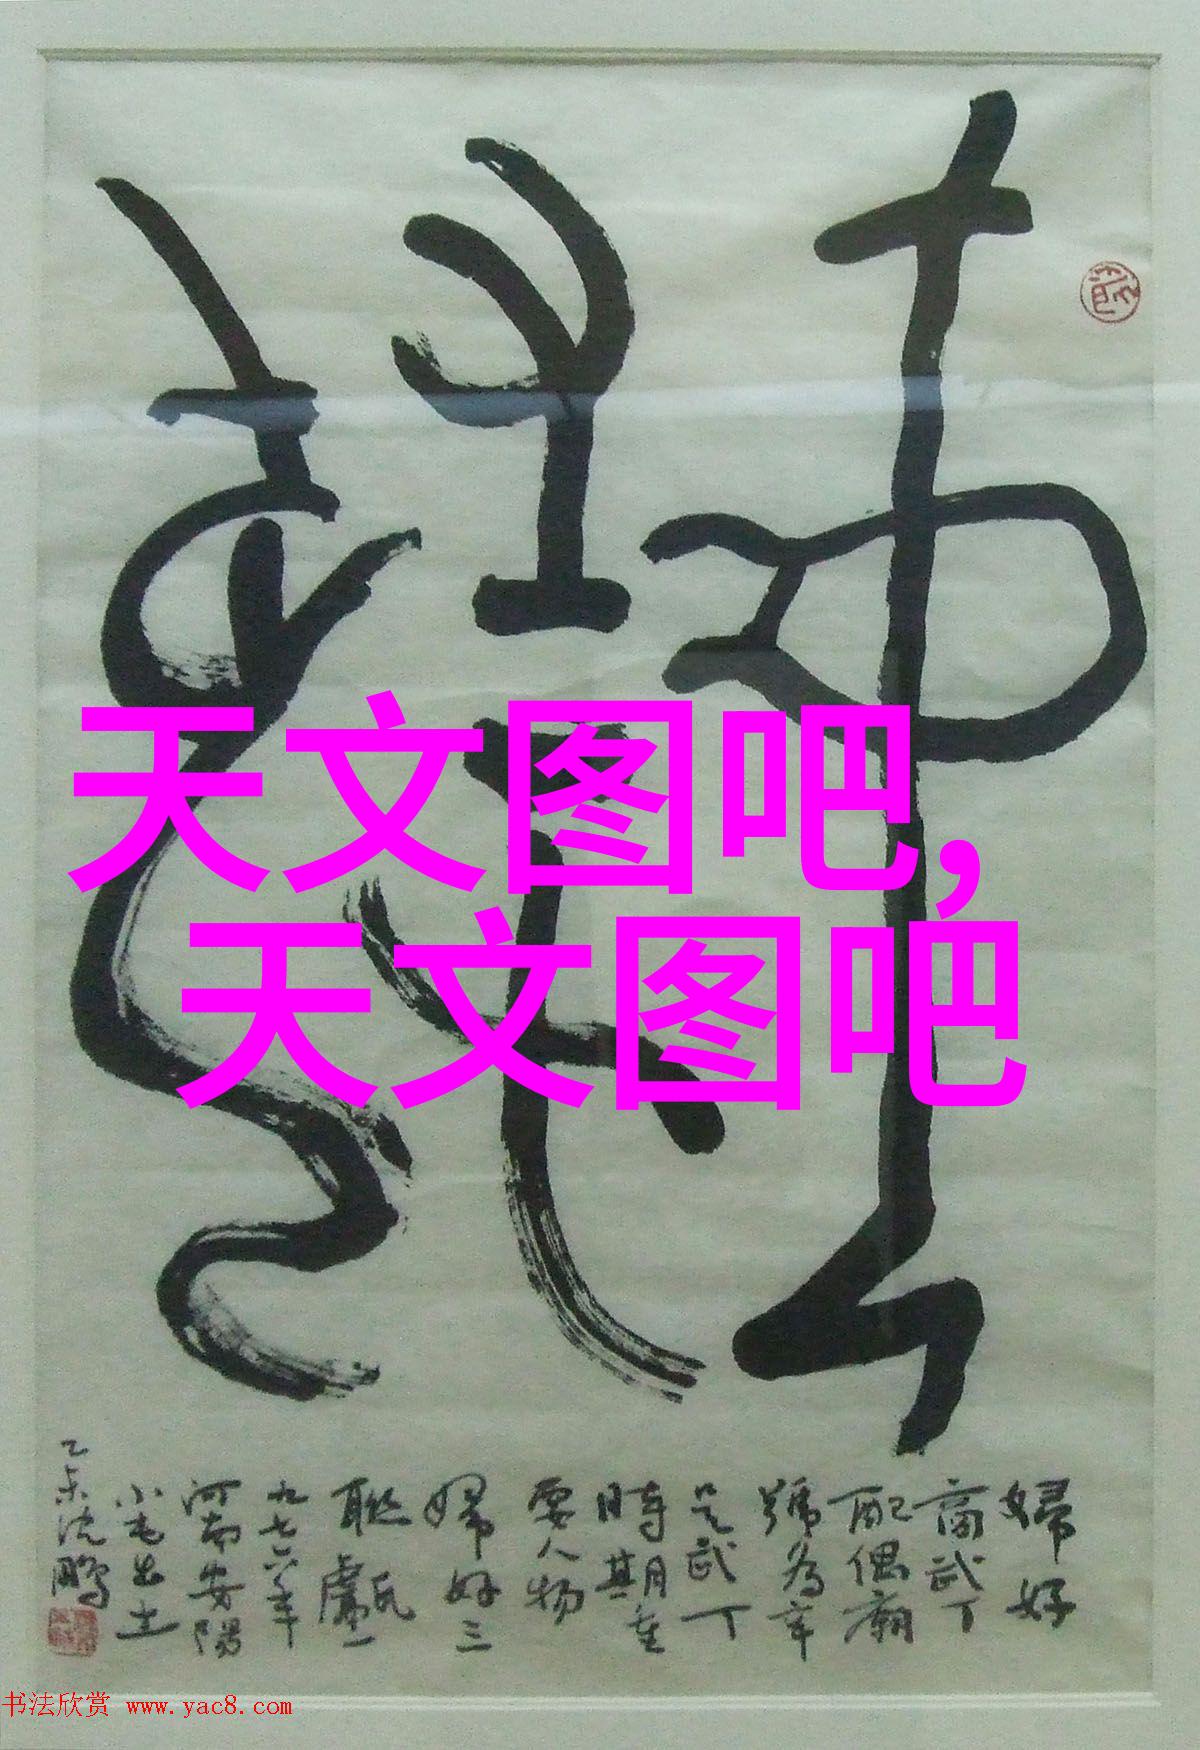 天文图吧,
天文图吧
婦好
商武丁
配偶廟
號为辛
是武丁
時期重
要人物
婦好三
聯甗一
九七六年
河南安陽
小屯出土
乙未沈鵬
书法欣赏 www.yac8.com